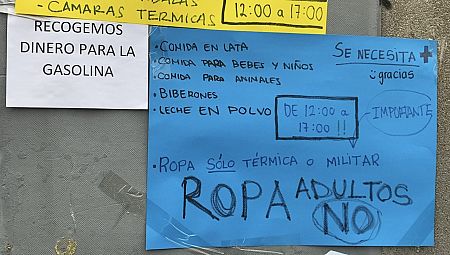 - CÁMARAS TÉRMICAS
12:00 a 17:00
RECOGEMOS
DINERO PARA LA
GASOLINA
SE NECESITA +
gracias
· COMIDA EN LATA
· COMIDA PARA BEBES Y NIÑOS
· COMIDA PARA ANIMALES
· BIBERONES
· LECHE EN POLVO
DE 12:00 a
17:00 !!
IMPORTANTE
· ROPA SÓLO TÉRMICA O MILITAR
ROPA ADULTOS
NO